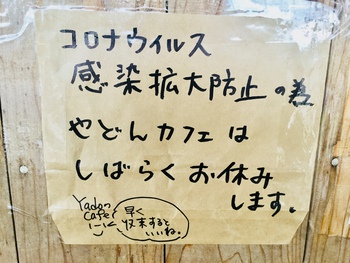 コロナウイルス
感染拡大防止の為
やどんカフェは
しばらくお休み
します。
Yadon
Cafe
早く
収束すると
いいね。